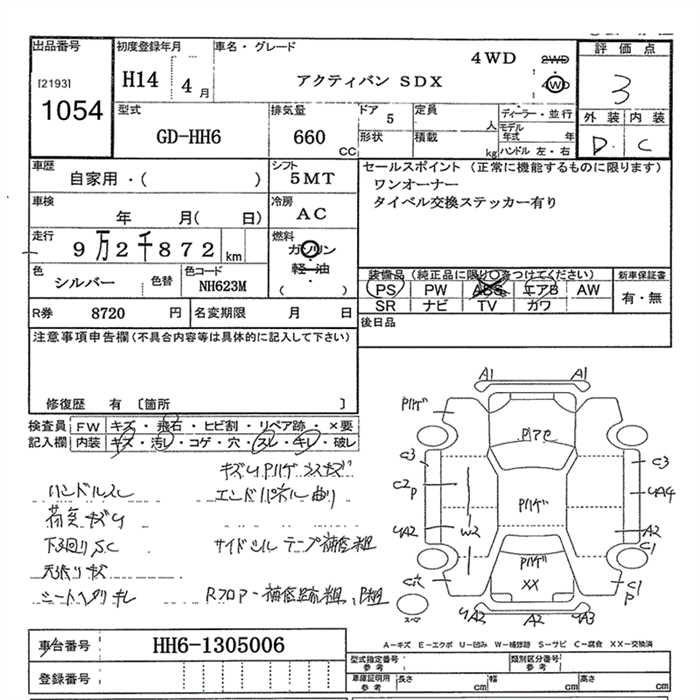 出品番号 初度登録年月 車名・グレード 4WD 2WD 評価点
[2193] H14 4月 アクティバン SDX 4WD 3
1054 型式 排気量 ドア 5 定員 人 ディーラー・並行 外装 内装
GD-HH6 660 CC 形状 積載 kg モデル年式 年 D C
ハンドル 左・右
車歴 シフト セールスポイント (正常に機能するものに限ります)
自家用・( ) 5MT ワンオーナー
車検 冷房 タイベル交換ステッカー有り
年 月( 日) AC
走行 燃料
9万2千872 km ガソリン
軽・油
( )
色 色替 色コード 装備品 (純正品に限り○をつけてください) 新車保証書
シルバー NH623M PS PW ABS エアB AW 有・無
SR ナビ TV カワ
R券 8720 円 名変期限 月 日 後日品
注意事項申告欄(不具合内容等は具体的に記入して下さい)
修復歴 有 [箇所 ]
検査員 FW キズ・飛石・ヒビ割・リペア跡・×要
記入欄 内装 キズ・汚レ・コゲ・穴・スレ・キレ・破レ
ハンドルスレ エンドパネル曲り
荷室キズ
下回りS.C サイドシル テープ補修粗
天張りキズ
Rフロアー補修跡粗
A1 A1
C3 C3
C2 P
W2 A2
C1
XX C1 P
スペア A2
車台番号 HH6-1305006
A-キズ E-エクボ U-凹み W-補修跡 S-サビ C-腐食 XX-交換済
登録番号 型式指定番号 参考 類別区分番号 参考
車庫証明用 参考 長さ cm 幅 cm 高さ cm